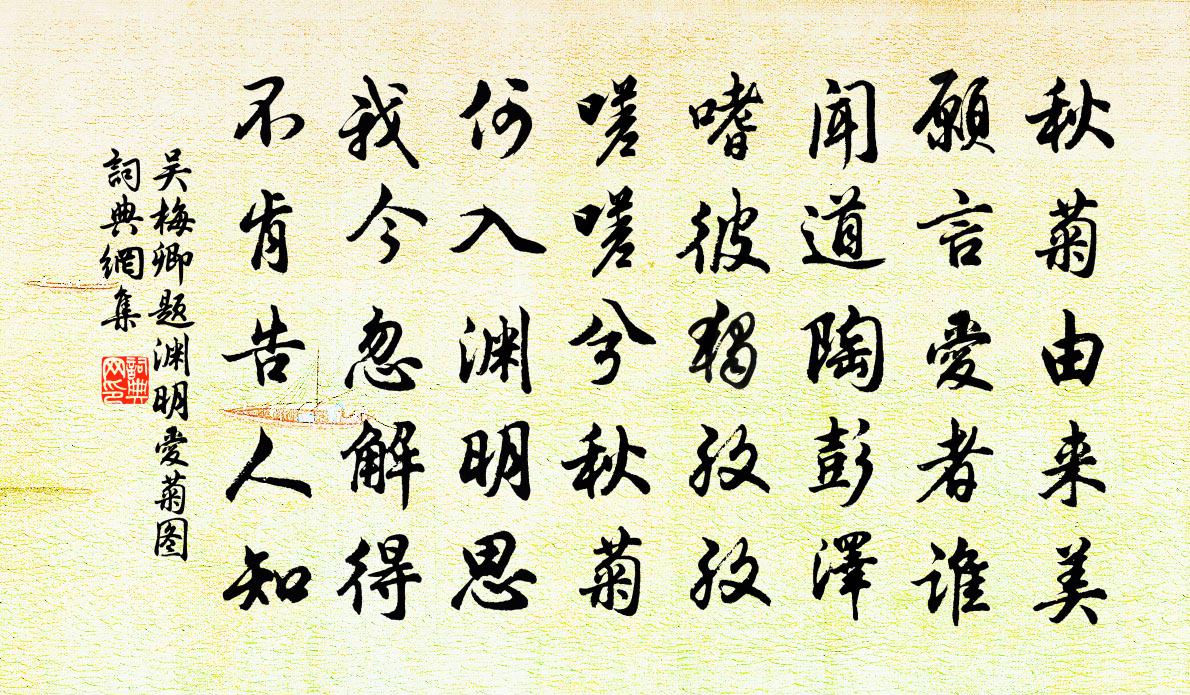 秋菊由来美
願言愛者谁
闻道陶彭澤
嗜彼独孜孜
嗟嗟兮秋菊
何入渊明思
我今忽解得
不肯告人知
吴梅卿题渊明愛菊图
詞典網集
詞典
网印